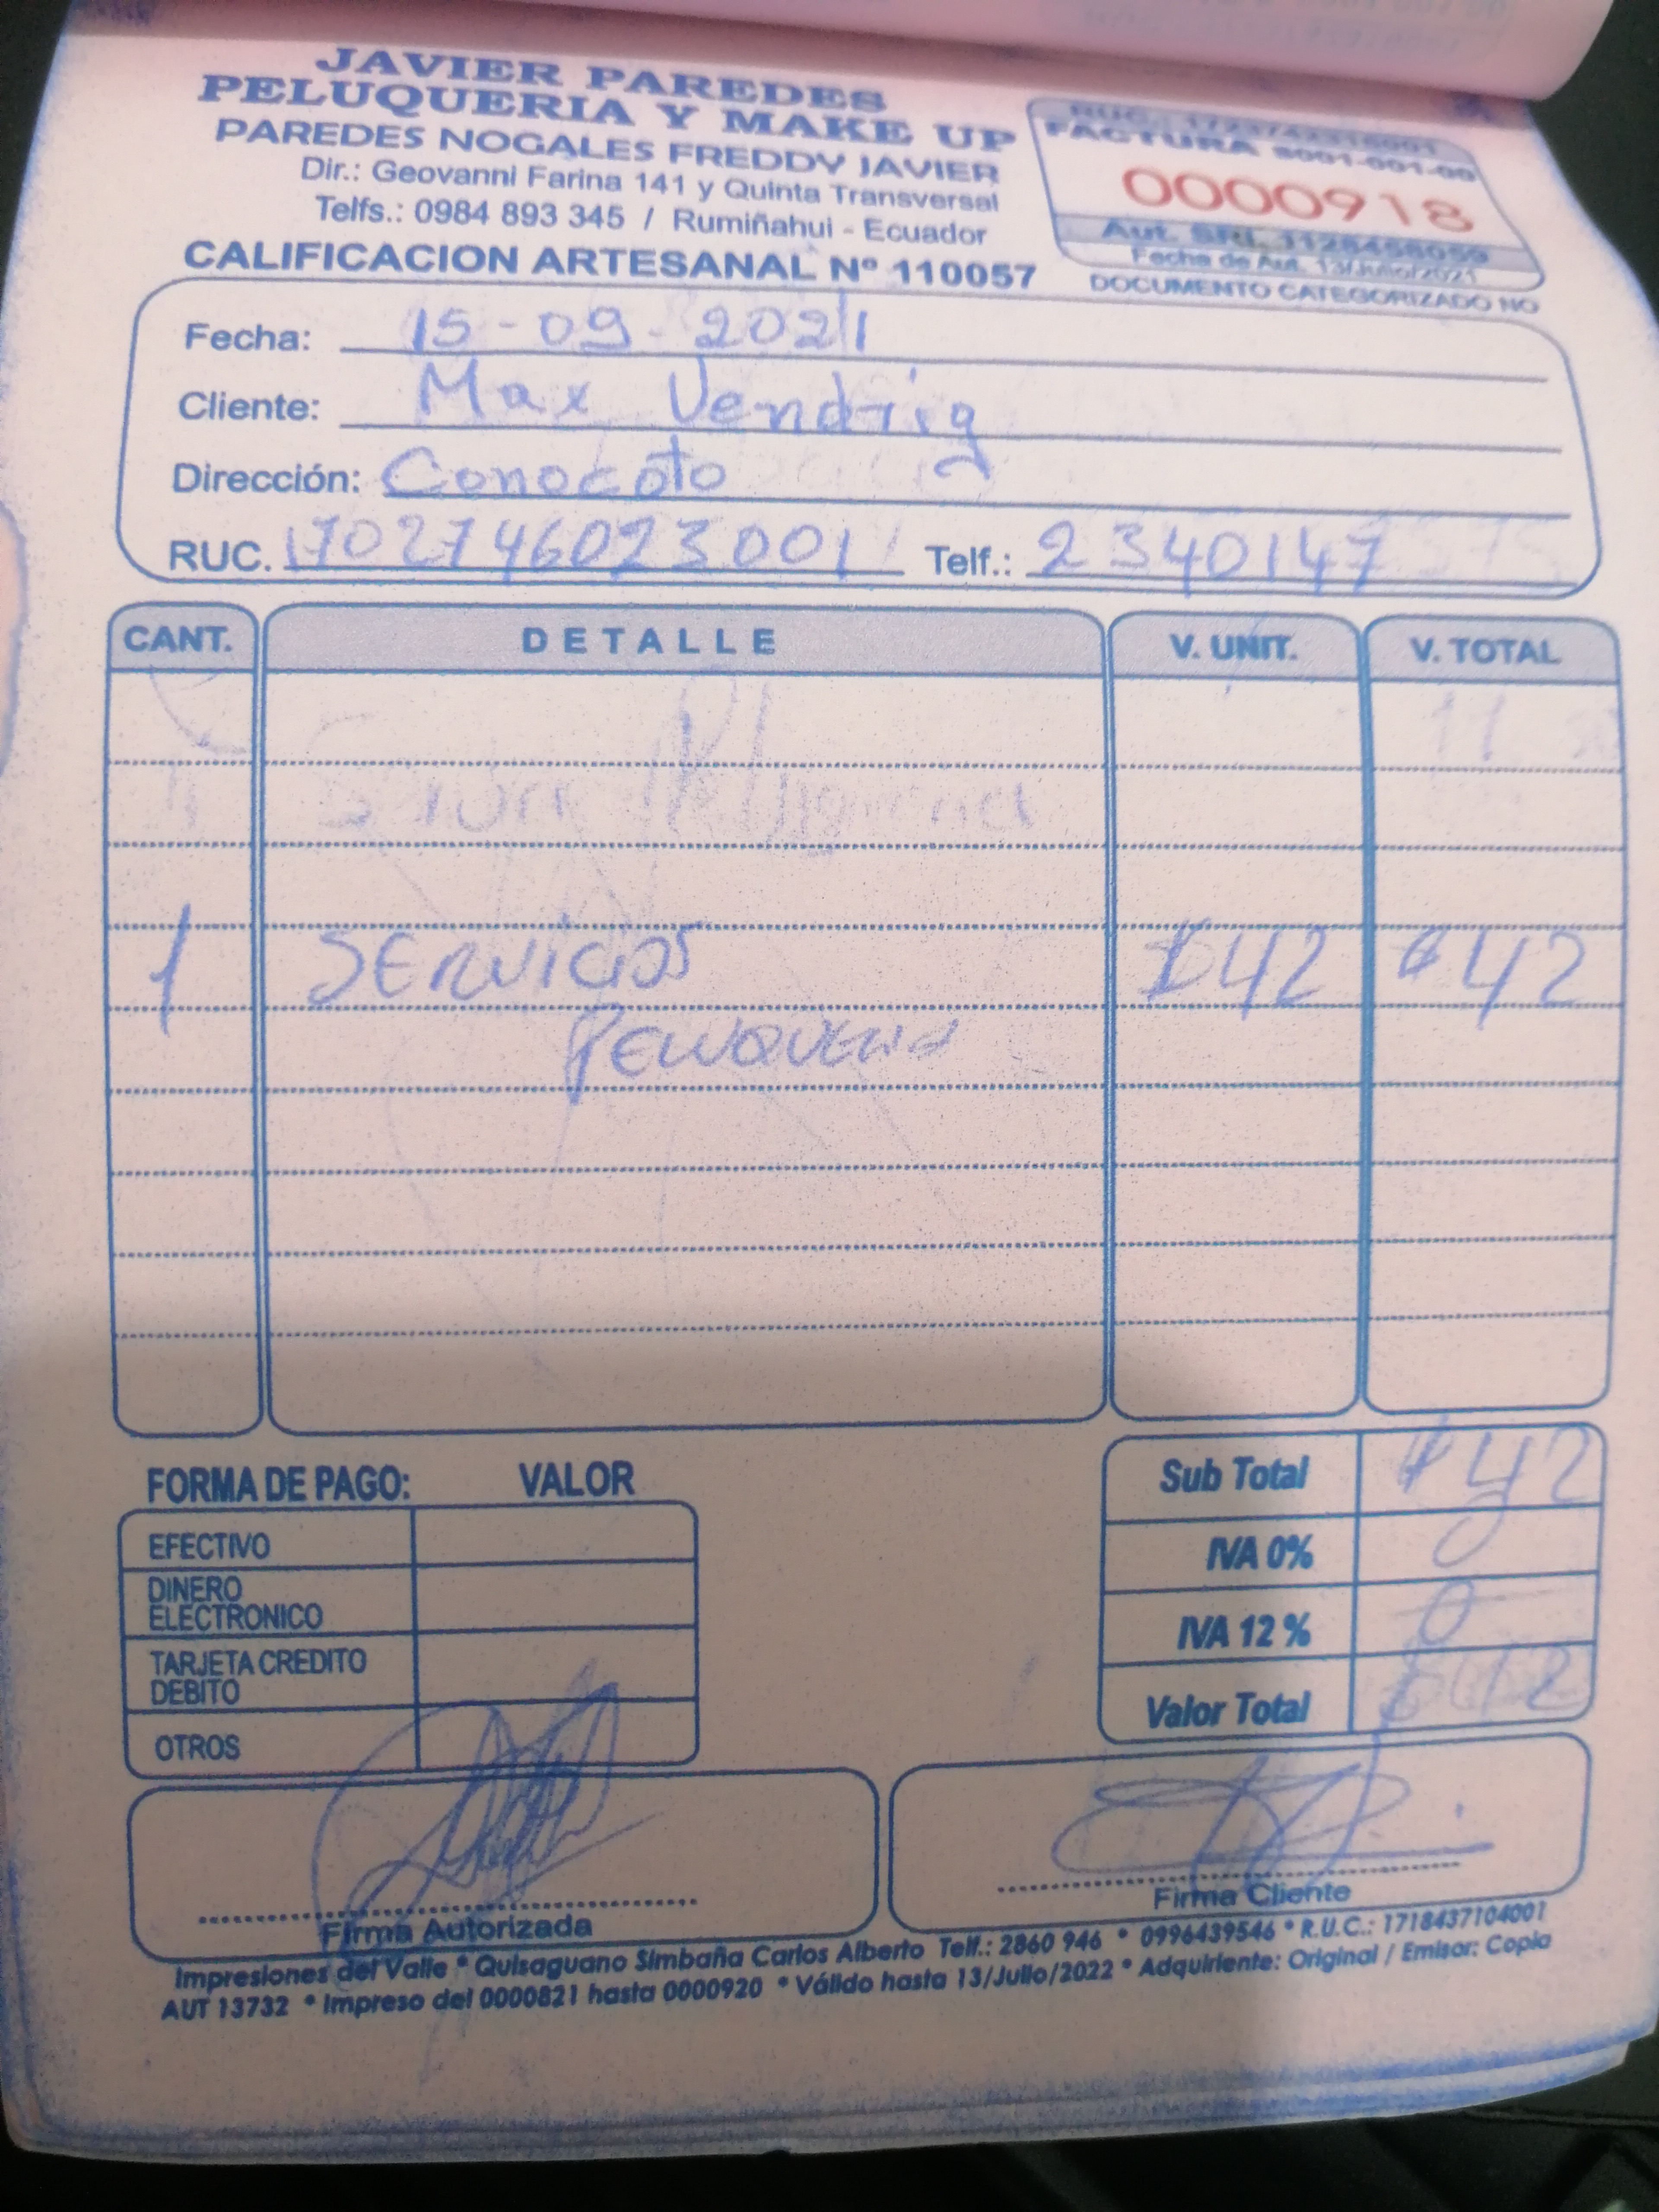 JAVIER PAREDES
PELUQUERIA Y MAKE UP
PAREDES NOGALES FREDDY JAVIER
Dir.: Geovanni Farina 141 y Quinta Transversal
Telfs.: 0984 893 345 / Rumiñahui - Ecuador
CALIFICACION ARTESANAL Nº 110057
RUC.:
FACTURA S001-001-00
0000918
Aut. SRI. 1128458059
Fecha de Aut. 13/Julio/2021
DOCUMENTO CATEGORIZADO NO
Fecha: 15-09-2021
Cliente: Max Vendrig
Dirección: Conocoto
RUC. 1702746023001 Telf.: 2340147
CANT. DETALLE V. UNIT. V. TOTAL
1 SERVICIOS $42 $42
PELUQUERIA
FORMA DE PAGO: VALOR
EFECTIVO
DINERO
ELECTRONICO
TARJETA CREDITO
DEBITO
OTROS
Sub Total $42
IVA 0% 0
IVA 12% 0
Valor Total $42
Firma Autorizada
Firma Cliente
Impresiones del Valle * Quisaguano Simbaña Carlos Alberto Telf.: 2860 946 * 0996439546 * R.U.C.: 1718437104001
AUT 13732 * Impreso del 0000821 hasta 0000920 * Válido hasta 13/Julio/2022 * Adquiriente: Original / Emisor: Copia